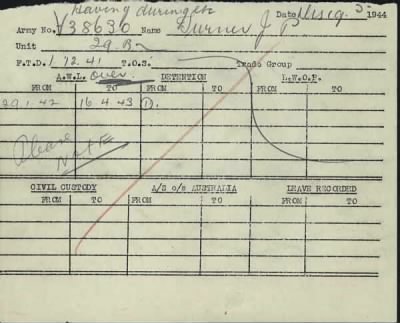 Having during
Date 1944
Army No. V38630 Name Durner J. P
Unit 29. Bn
F.T.D. 1 12.41 T.O.S. Trade Group
A.W.L. over. DETENTION L.W.O.P.
FROM TO FROM TO FROM TO
29.1.42 16.4.43 (1).
Please
Note
CIVIL CUSTODY A/S o/s AUSTRALIA LEAVE RECORDED
FROM TO FROM TO FROM TO